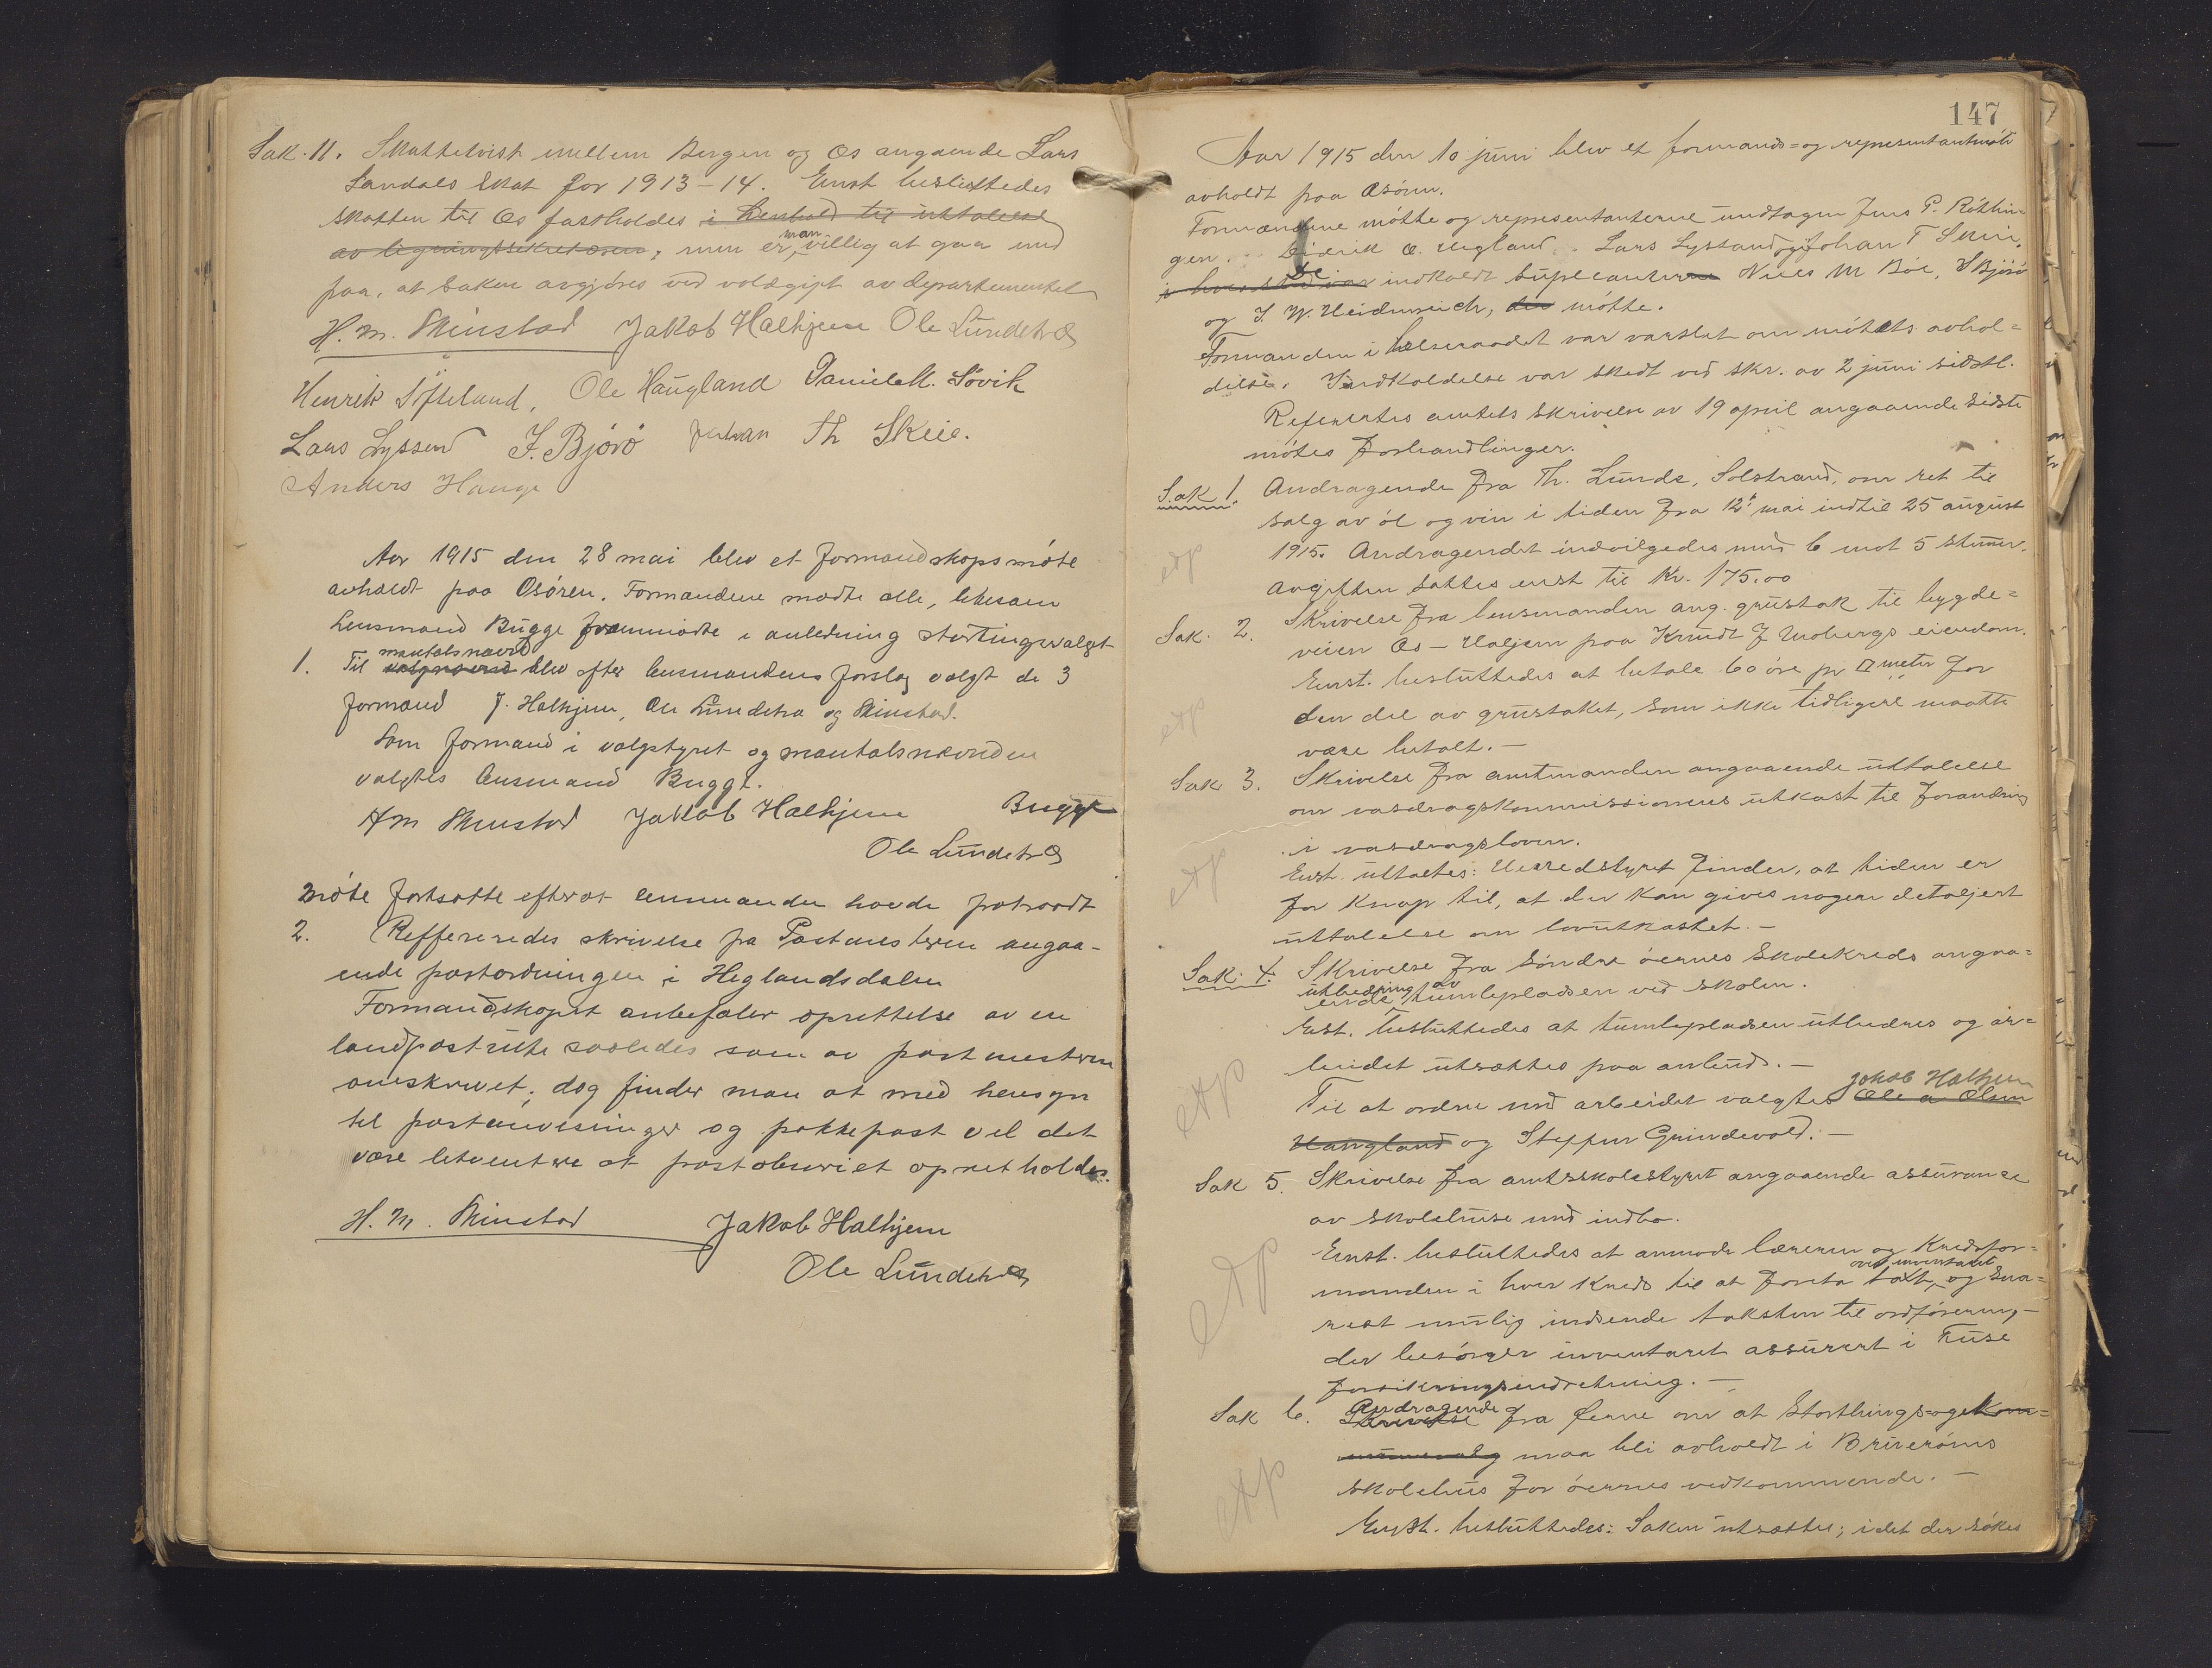 Sak. 11. Skattetvist mellem Bergen og Os angaaende Lars
Sandals skat for 1913-14. Enst besluttedes
skatten til Os fastholdes i henhold til uttalelse
av ligningssekretæren, men er man villig at gaa med
paa, at saken avgjøres ved voldgift av departementet
H. M. Skinstad Jakob Halhjem Ole Lundetræ
Henrik Søfteland, Ole Haugland Daniel M. Søvik
Lars Lyssand J. Bjørø Johan Th Skeie.
Anders Hauge
Aar 1915 den 28 mai blev et formandskapsmøte
avholdt paa Osøren. Formændene mødte alle, likesom
Lensmand Bugge fremmødte i anledning stortingsvalget
1. Til valgnævnd mantalsnævnd blev efter lensmandens forslag valgt de 3
formænd J. Halhjem, Ole Lundetræ og Skinstad.
Som formand i valgstyret og mantalsnævnden
valgtes lensmand Bugge.
H M Skinstad Jakob Halhjem Bugge
Ole Lundetræ
Møte fortsatte efterat lensmanden havde fratraadt
2. Reffereredes skrivelse fra Postmesteren angaa-
ende postordningen i Heglandsdalen
Formandskapet anbefaler oprettelse av en
landpostrute saaledes som av postmesteren
omskrevet; dog finder man at med hensyn
til postanvisninger og pakkepost vil det
være letventre at postabneriet opretholdes.
H. M. Skinstad Jakob Halhjem
Ole Lundetræ
147
Aar 1915 den 10 juni blev et formands- og representantmøte
avholdt paa Osøren.
Formændene møtte og representanterne undtagen Jens P. Røttin-
gen, Diderik O. Hegland, Lars Lyssand og Johan T Skeie,
i hvis sted var indkaldt suppleanterne Niels M Bøe, J Bjørø
og J. W. Heidenreich, der møtte.
Formanden i helseraadet var varslet om møtets avhol-
delse. Indkaldelse var skedt ved skr. av 2 juni sidstl.
Refertes amtets skrivelse av 19 april angaaende sidste
møtes forhandlinger.
Sak 1. Andragende fra Th. Lunde, Solstrand, om ret til
salg av øl og vin i tiden fra 12te mai indtil 25 august
1915. Andragendet indvilgedes med 6 mot 5 stemmer.
Avgiften sattes enst til Kr. 175.00
Sak. 2. Skrivelse fra lensmanden ang. grustak til bygde-
veien Os – Haljem paa Knudt J Mobergs eiendom.
Enst. besluttedes at betale 60 øre pr □ meter for
den del av grustaket, som ikke tidligere maatte
være betalt. –
Sak 3. Skrivelse fra amtmanden angaaende uttalelse
om vasdragskommissionens utkast til forandring
i vasdragsloven.
Enst. uttaltes: Herredstyret finder, at tiden er
for knap til, at der kan gives nogen detaljert
uttalelse om lovutkastet. –
Sak. 4. Skrivelse fra Søndre øernes skolekreds angaa-
ende utbedring av tumlepladsen ved skolen.
Enst. besluttedes at tumlepladsen utbedres og ar-
beidet utsættes paa anbud. –
Til at ordne med arbeidet valgtes Ole A Olsen Jakob Halhjem
Haugland og Steffen Grindevold. –
Sak 5. Skrivelse fra amtsskolestyret angaaende assurance
av skolehuse med indbo.
Enst. besluttedes at anmode læreren og kredsfor-
manden i hver kreds til at foreta takst over inventaret, og sna-
rest mulig indsende taksten til ordføreren, –
der besørger inventaret assurert i Fuse
forsikringsindretning. –
Sak 6. Skrivelse Andragende fra øerne om at Stortings- og kom-
munevalg maa bli avholdt i Bruerøens
skolehus for øernes vedkommende. –
Enst. besluttedes: Saken utsættes, idet der søkes